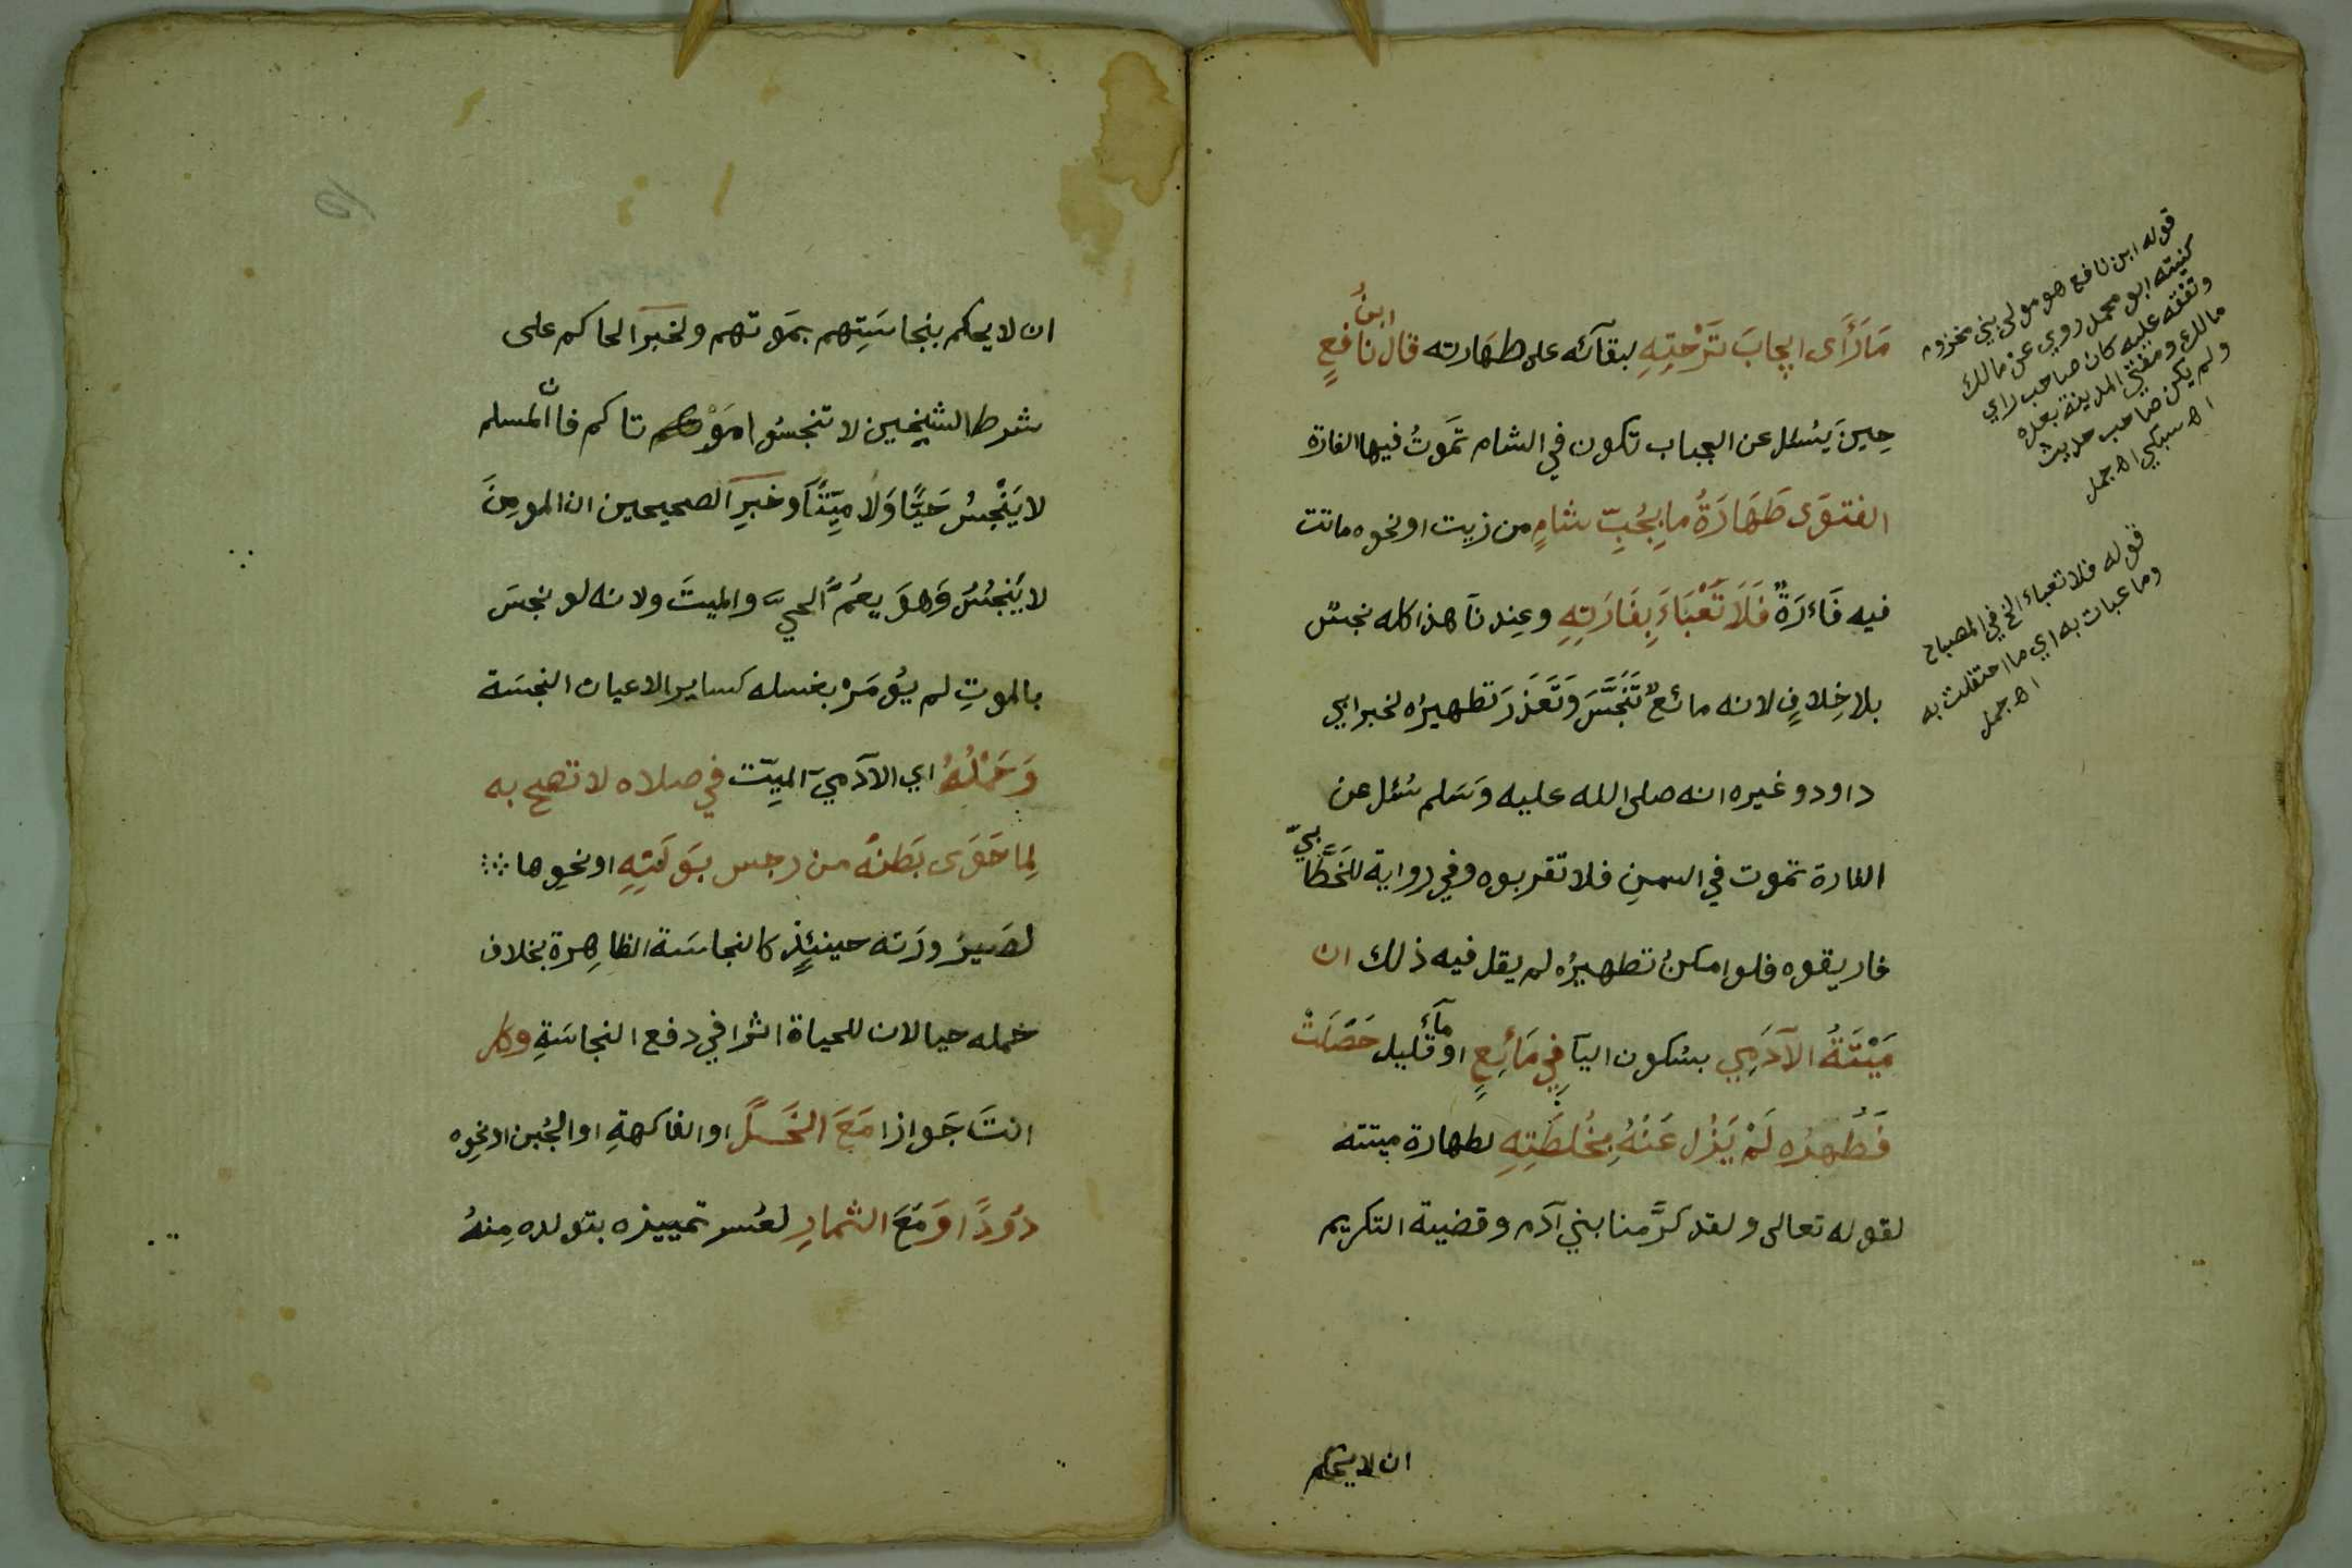 مَارَأَى ايجابَ نَزْحَتِهِ لبقآئه على طهَارته قال ابنُ نافعٍ
حِينَ يُسْئل عن الجباب تكون في الشام تَموتُ فيها الفارة
الفتوَى طَهَارَةُ ما بِجُبِّ شامٍ من زيت اونحوه ماتت
فيه فَاءرَةٌ فَلَا تَعْبَاءَ بِفَارَتِهِ وعِندنَا هذا كله نجسٌ
بلا خِلافٍ لانه مائعٌ تَنَجَّسَ وَتَعَذَرَ تطهيرُه لخبر ابي
داود وغيره انه صلى الله عليه وَسَلم سُئل عن
الفارة تموت في السمنِ فلا تقربوه وفي رواية للخَطَّابيّ
فاريقوه فلو امكنُ تطهيرُه لم يقل فيه ذلك ان
مَيْتَةُ الآدَمِي بسُكون اليآ في مَائِعٍ او مآءٍ قليل حَصَلَتْ
فَطُهْرُه لَمْ يَزُل عَنْهُ بِخُلطَتِهِ لطهارة ميتته
لقوله تعالى ولقد كرَّمنا بني آدم وقضية التكريم
ان لا يحكم
قوله ابن نافع هو مولى بني مخزوم
كنيته ابو محمد روي عن مالك
وتفقه عليه كان صاحب راي
مالك ومفتي المدينة بعده
ولم يكن صاحب حديث
اه سبكي اه جمل
قوله فلا تعباء الخ في المصباح
وما عبات به اي ما احتفلت به
اه جمل
ان لا يحكم بنجاسَتِهم بمَوتهم ولخبر الحاكم على
شرط الشيخين لا تنجسُوا مَوْتاكم فانّ المسلم
لا يَنْجسُ حَيًّا وَلا مَيِّتًا وخبرِ الصحيحين ان المومِنَ
لا يَنْجُسُ وَهوَ يعُمُّ الحيَّ والميتَ ولانه لو نجسَ
بالموتِ لم يؤمَرْ بغسله كساير الاعيان النجسَة
وَحَمْلُهُ اي الآدَميّ الميِّت في صلاه لا تصح به
لِما حَوَى بَطنُه من رجس بَوْلَتِهِ اونحوِها
لصَيرُورَته حينئذٍ كالنجاسَة الظاهِرة بخلاف
حمله حيا لان للحياة اثرا في دفع النجاسَةِ وكل
انتَ جَوازا مَعَ الخَلِّ اوالفاكهةِ او الجُبن اونحوِه
دُودًا وَمَعَ الثمارِ لعُسر تمييزه بتولده مِنهُ